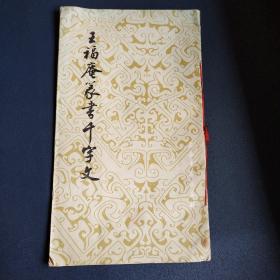 王福庵篆书千字文